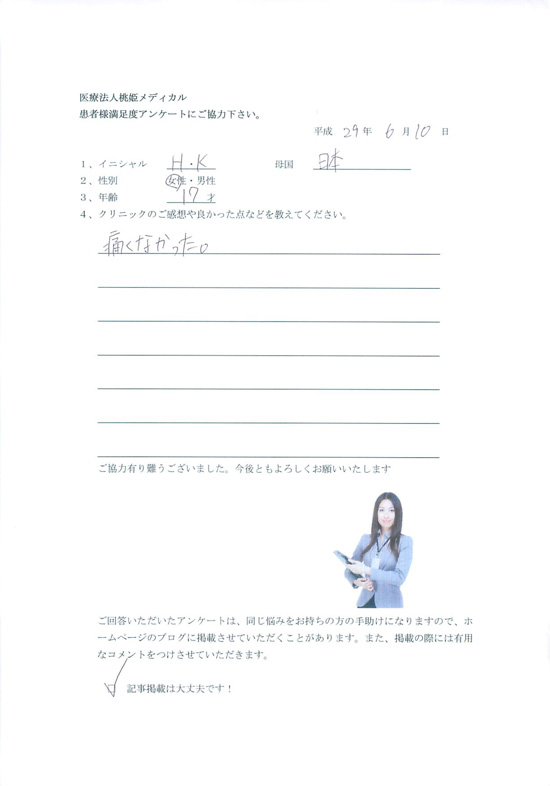 医療法人桃姫メディカル
患者様満足度アンケートにご協力下さい。
平成 29 年 6 月 10 日
1、イニシャル H・K 母国 日本
2、性別 女性・男性
3、年齢 17 才
4、クリニックのご感想や良かった点などを教えてください。
痛くなかった。
ご協力有り難うございました。今後ともよろしくお願いいたします
ご回答いただいたアンケートは、同じ悩みをお持ちの方の手助けになりますので、ホ
ームページのブログに掲載させていただくことがあります。また、掲載の際には有用
なコメントをつけさせていただきます。
☑ 記事掲載は大丈夫です!